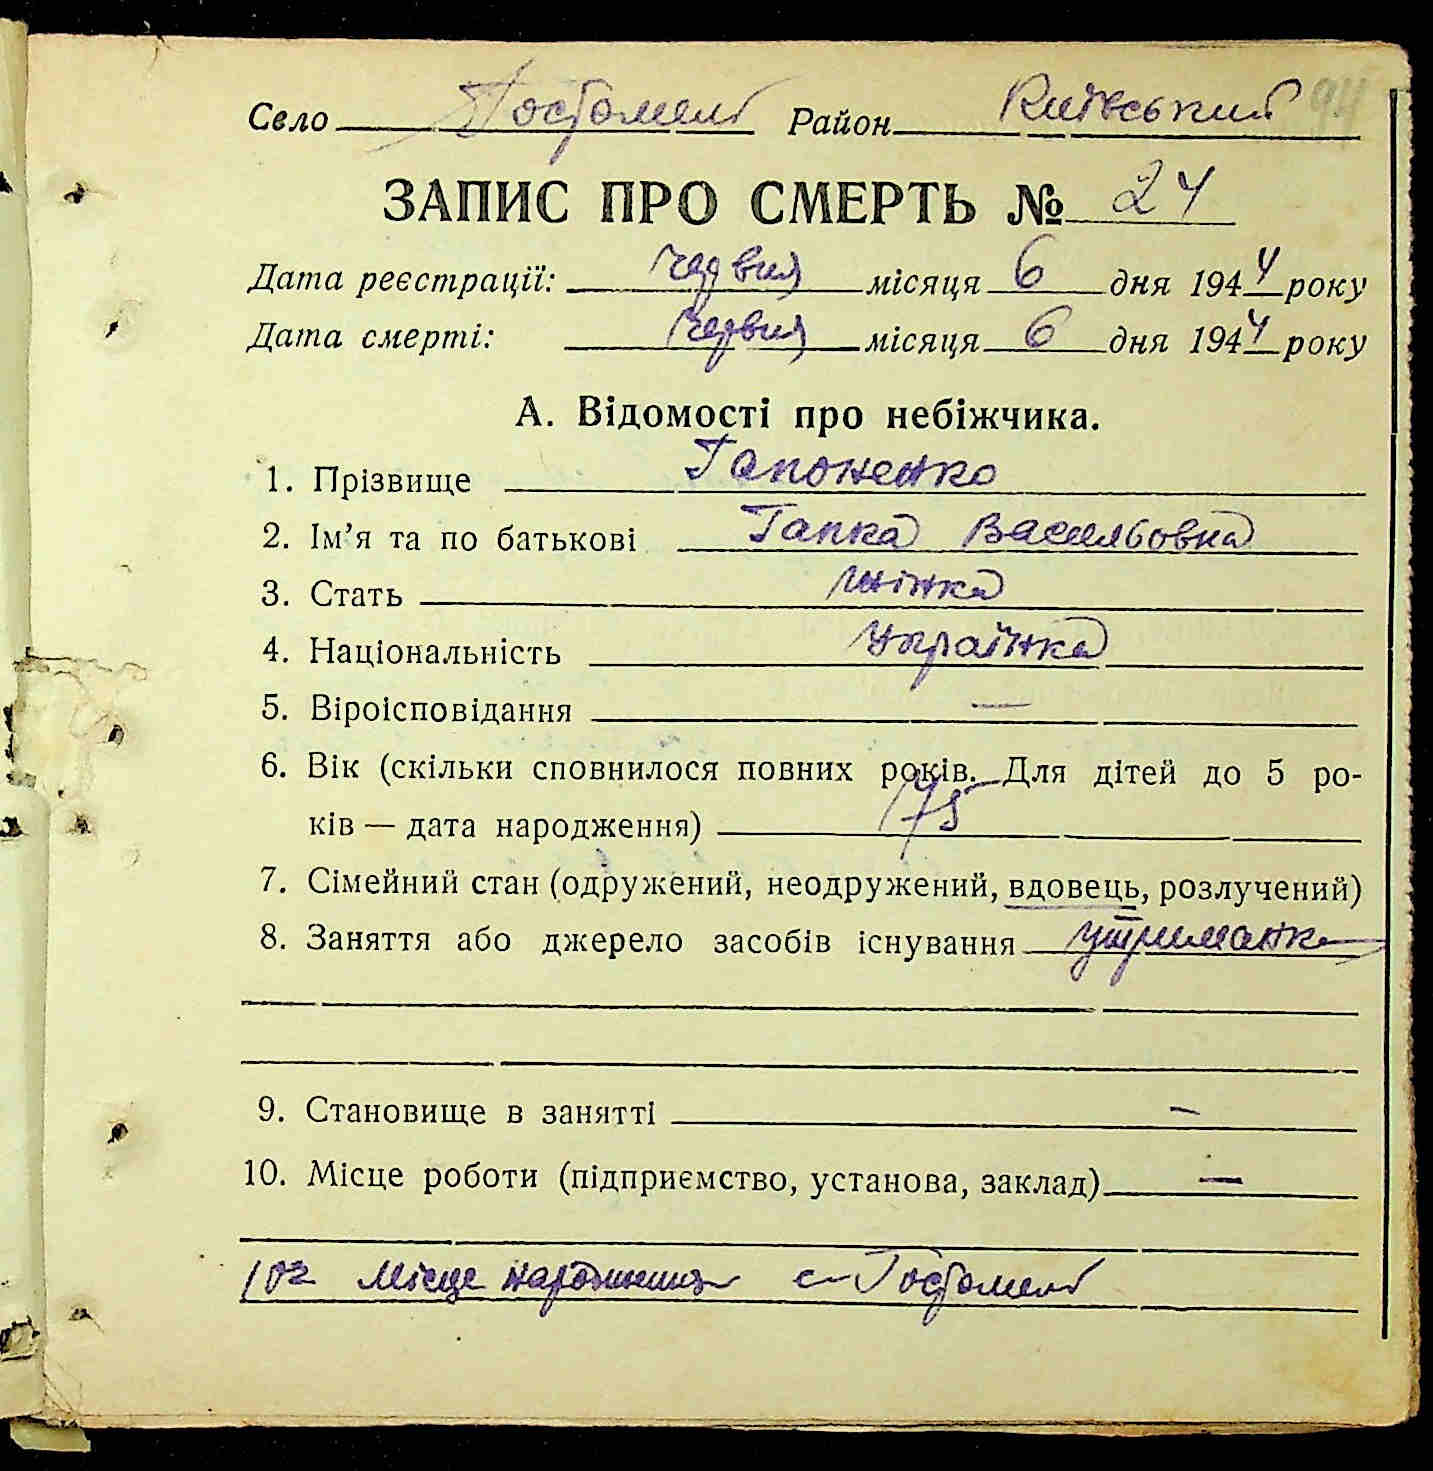 94
Село Гостомель Район Київський
ЗАПИС ПРО СМЕРТЬ № 24
Дата реєстрації: червня місяця 6 дня 1944 року
Дата смерті: червня місяця 6 дня 1944 року
А. Відомості про небіжчика.
1. Прізвище Гапоненко
2. Ім’я та по батькові Гапка Васильовна
3. Стать жінка
4. Національність Українка
5. Віроісповідання —
6. Вік (скільки сповнилося повних років. Для дітей до 5 ро-
ків — дата народження) 75
7. Сімейний стан (одружений, неодружений, вдовець, розлучений)
8. Заняття або джерело засобів існування утриманка
9. Становище в занятті —
10. Місце роботи (підприємство, установа, заклад) —
Місце народження с. Гостомель